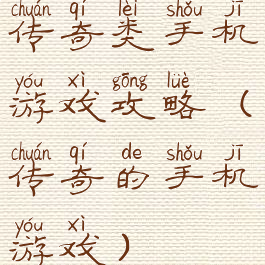 chuán qí lèi shǒu jī
传奇类手机
yóu xì gōng lüè
游戏攻略（
chuán qí de shǒu jī
传奇的手机
yóu xì
游戏）